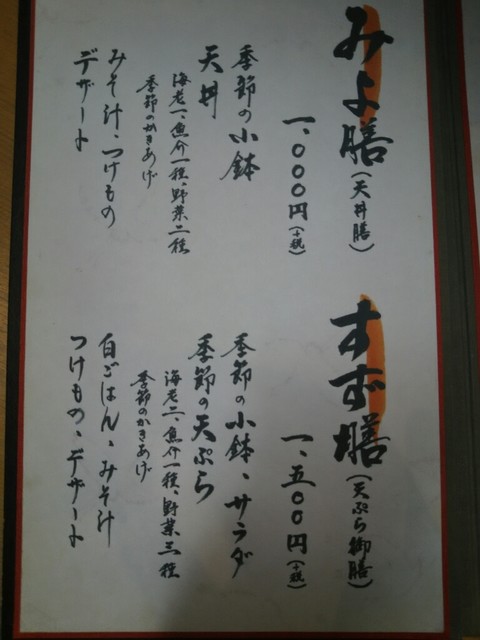 みよ膳(天丼膳)
一、〇〇〇円(+税)
季節の小鉢
天丼
海老一、魚介一種、野菜二種
季節のかきあげ
みそ汁、つけもの
デザート
すず膳(天ぷら御膳)
一、五〇〇円(+税)
季節の小鉢、サラダ
季節の天ぷら
海老二、魚介一種、野菜三種
季節のかきあげ
白ごはん、みそ汁
つけもの、デザート